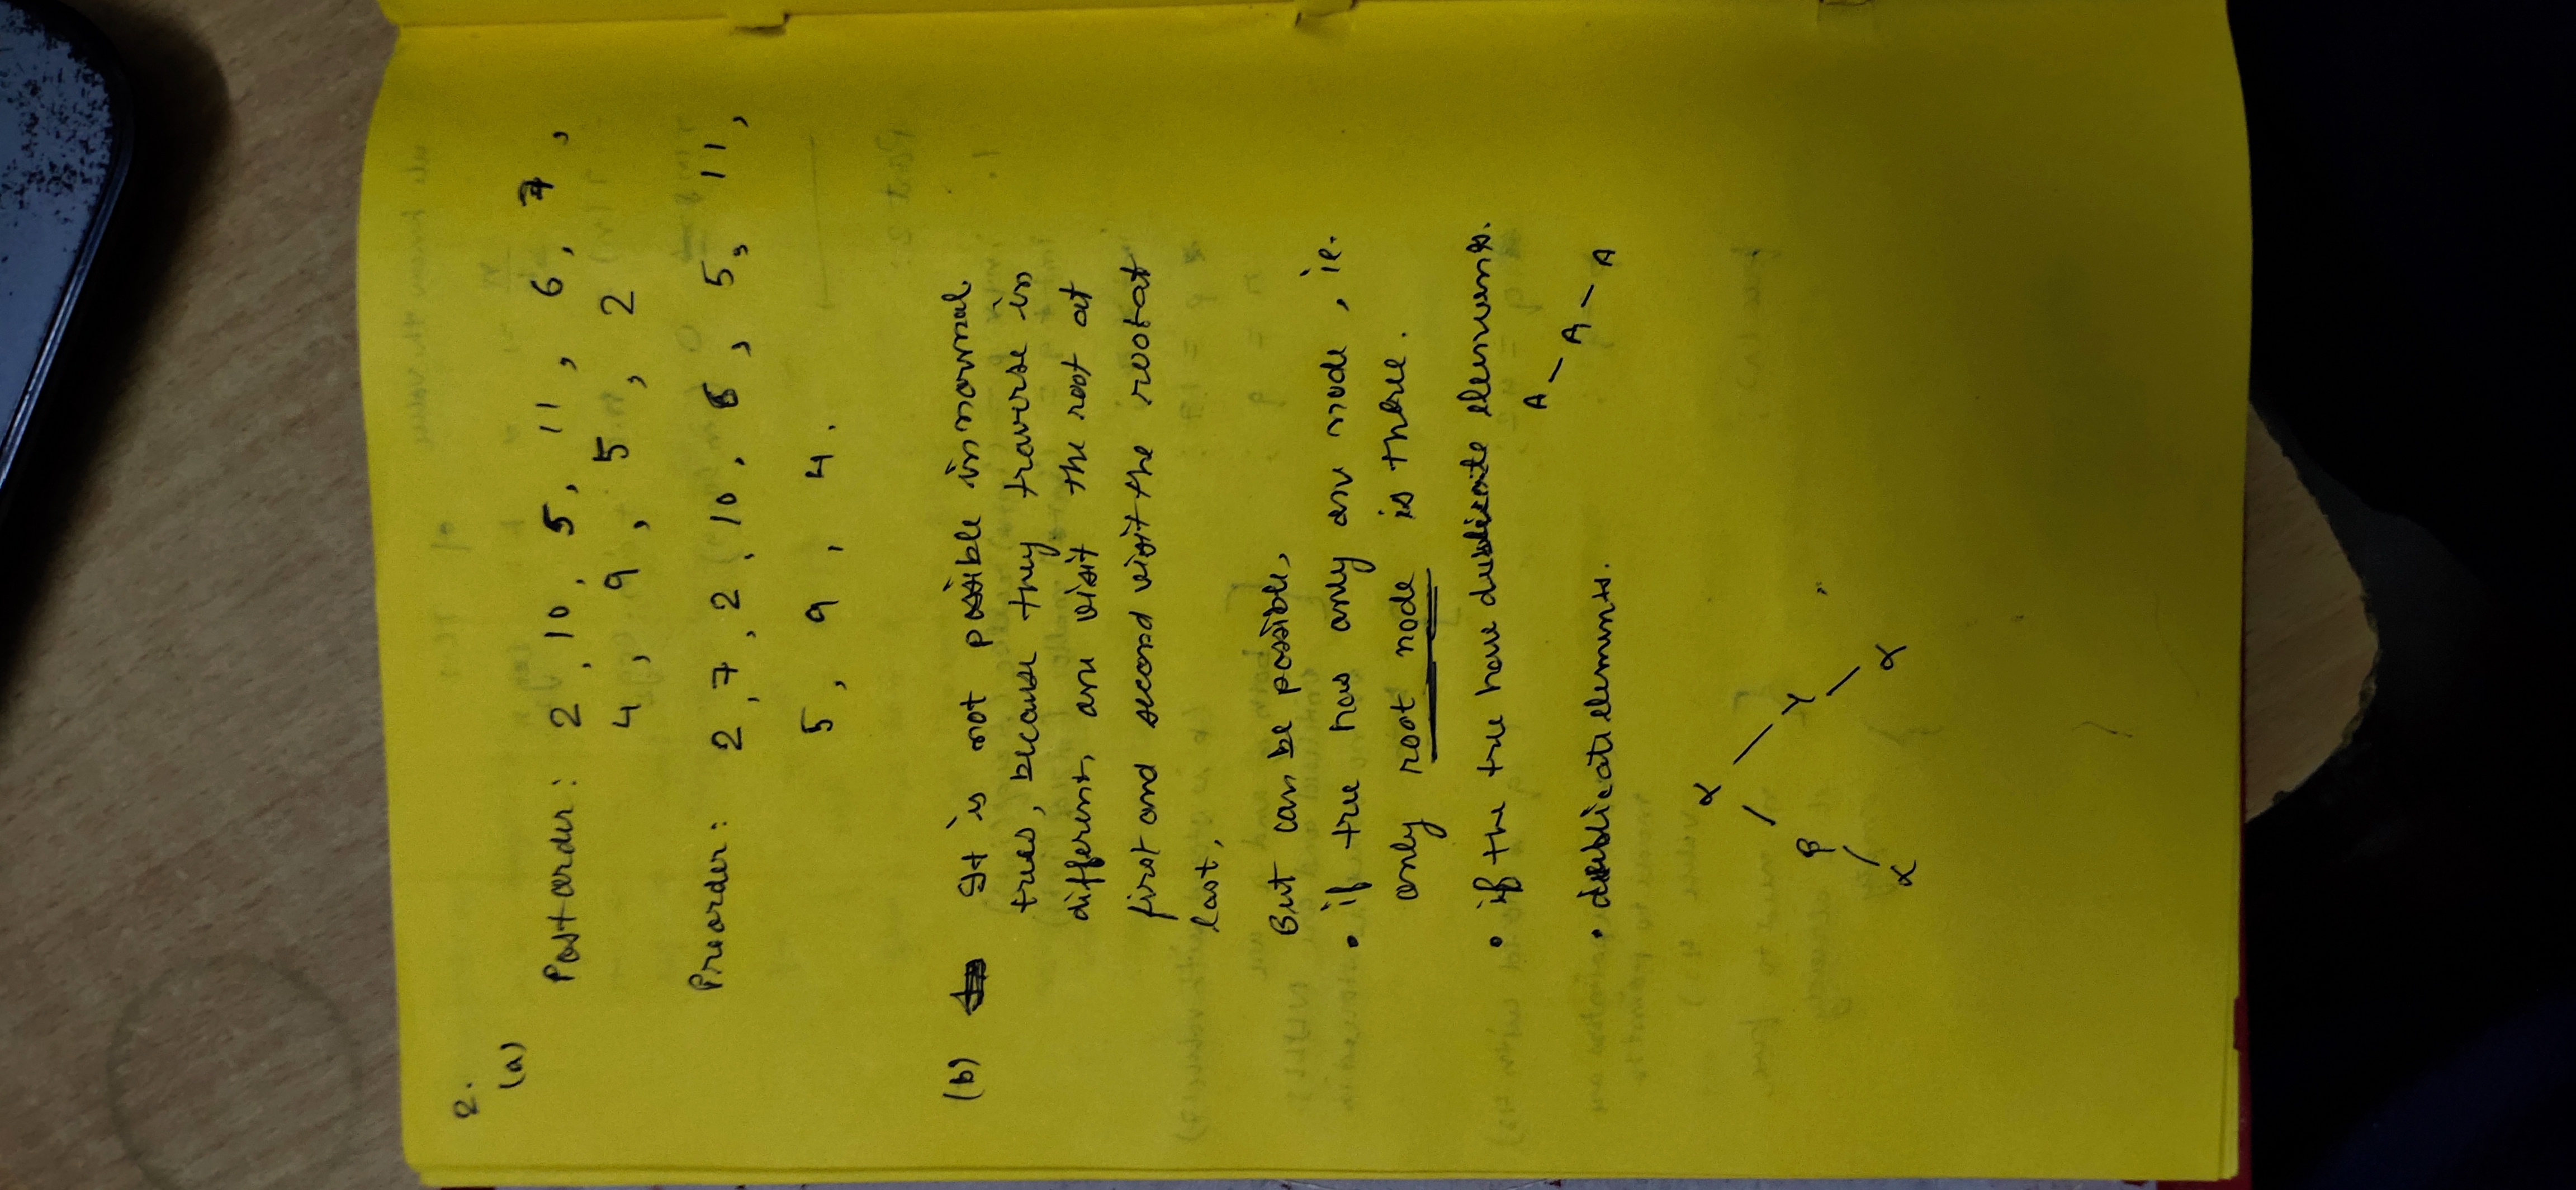 2.
(a)
Postorder: 2, 10, 5, 11, 6, 7,
4, 9, 5, 2
Preorder: 2, 7, 2, 10, 6, 5, 11,
5, 9, 4.
(b) It is not possible in normal
trees, because they traverse in
different, one visit the root at
first and second visit the root at
last,
But can be possible,
• if tree has only one node, ie.
only root node is there.
• if the tree have dublicate elements.
A
A
A
• dublicate elements.
α
β γ
α α